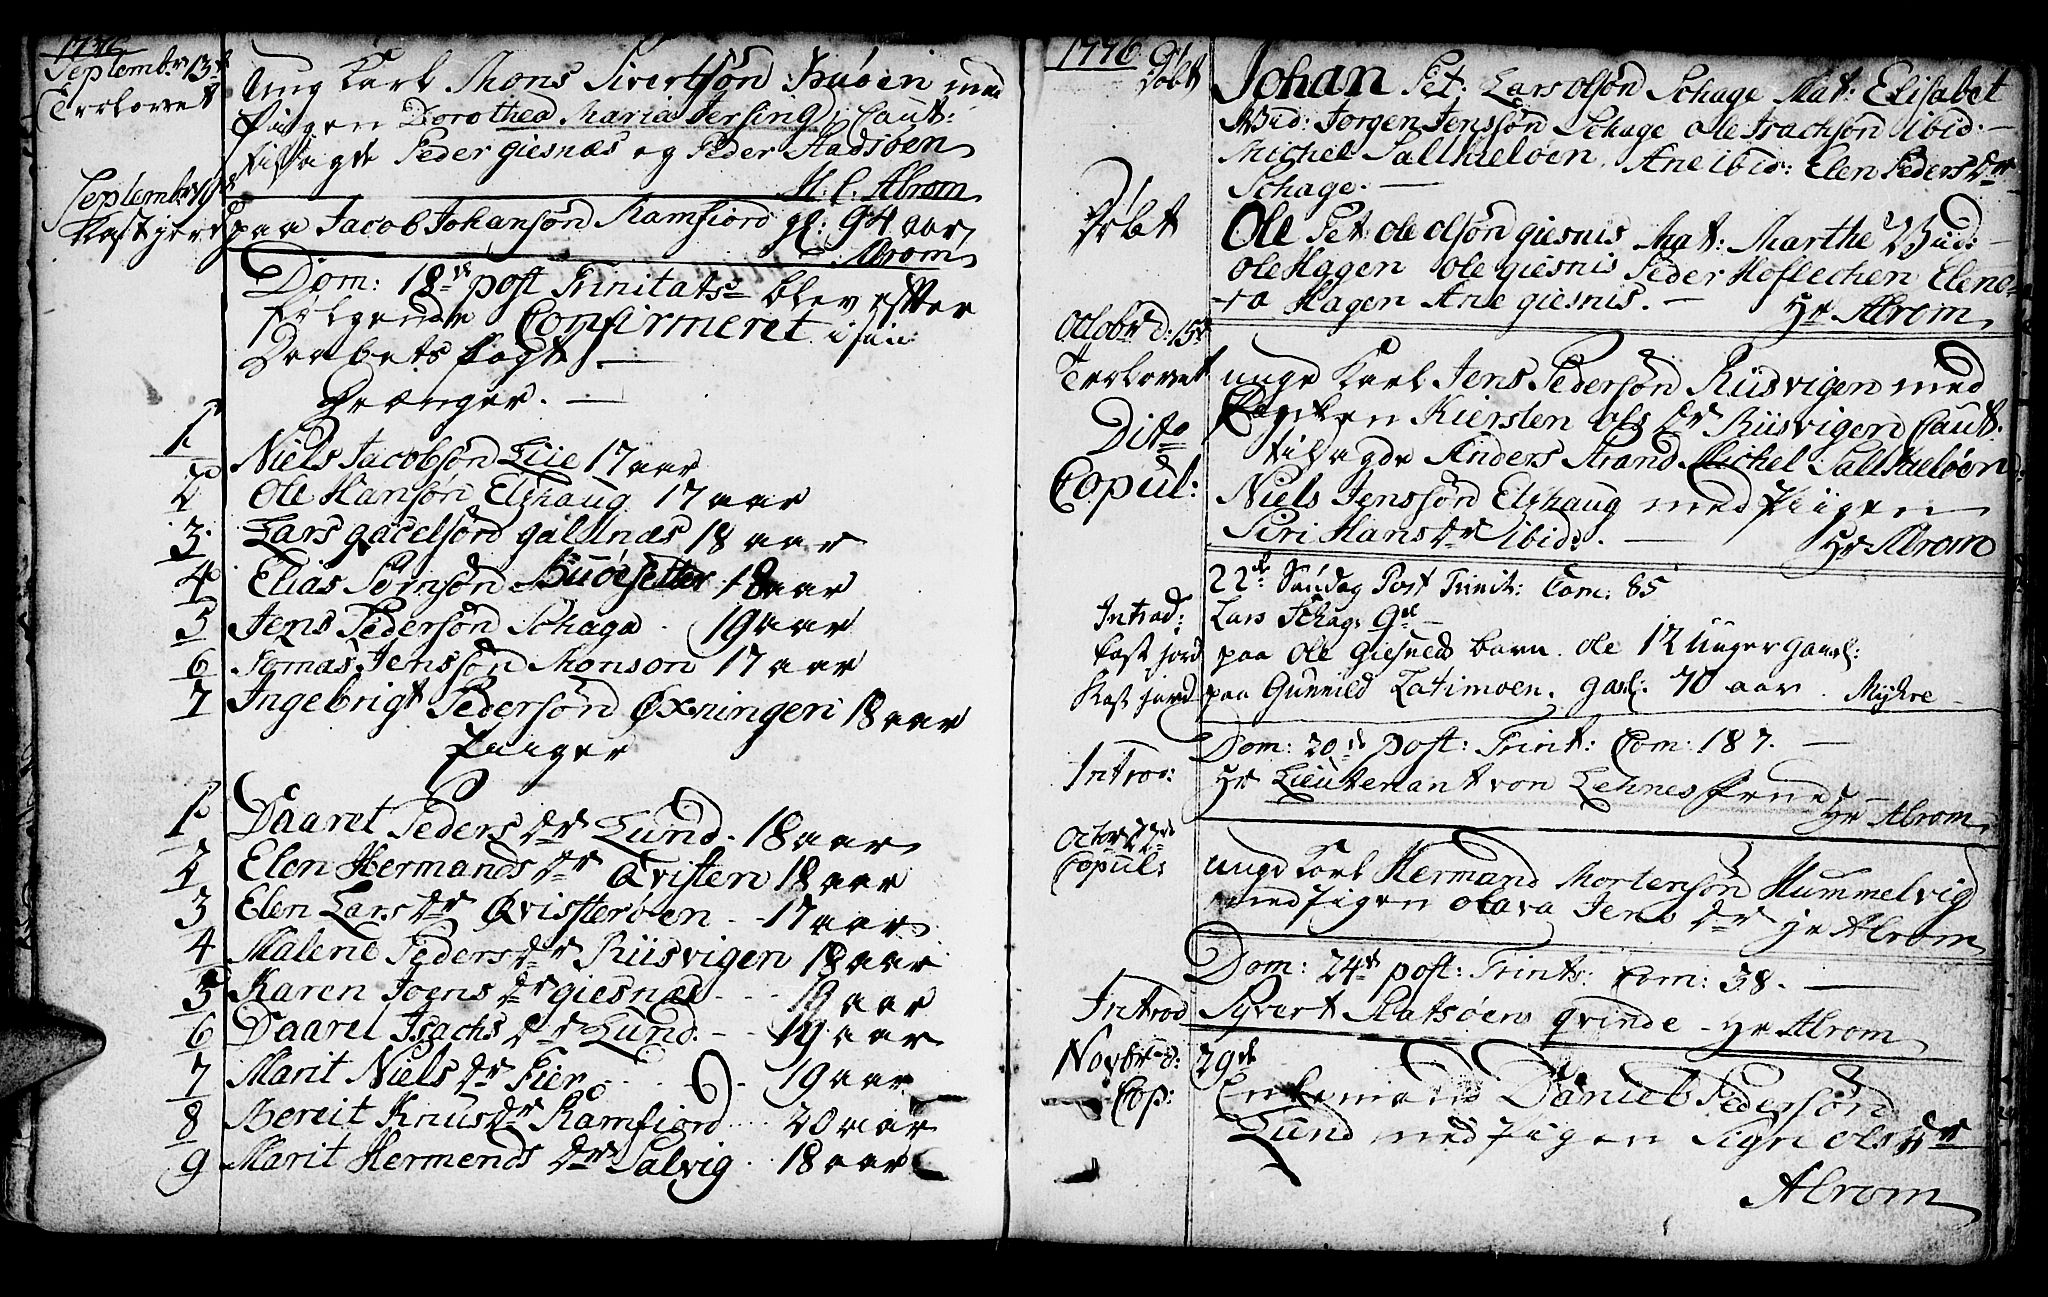 1776
Septembr 13de
Trolovet
Ung Karl Mons Sivertsøn Buøen med
Pigen Dorothea Maria Jersing Caut:
tilsagde Peder giesnæs og Peder Stadsøen
H. C. Abrom
Septembr
Kastjord paa Jacob Johansøn Ramfiord gl: 94 aar
Abrom
Dom: 18de post Trinitats blev efter
følgende Confirmeret i sin
Daabets Pagt. —
Drænger. —
1 Niels Jacobsøn Liie 17 aar
2 Ole Hansøn Elzhaug 17 aar
3 Lars gadelsøn galknæs 18 aar
4 Elias Sørnsøn Buøesetter 18 aar
5 Jens Pedersøn Schaga. 19 aar
6 Tomas Jenssøn Monson 17 aar
7 Ingebrigt Pedersøn Øxningen 18 aar
Piiger
1 Daaret Peders dr Lund. 18 aar
2 Elen Hermands dr Qvisten 18 aar
3 Elen Lars dr Qvisterøen 17 aar
4 Malene Peders dr Riisvigen 18 aar
5 Karen Joens dr giesnæs 19 aar
6 Daaret Isachs dr Lund. 19 aar
7 Marit Niels dr Fier 19 aar
8 Bereit Knus dr Ramfiord 20 aar
9 Marit Hermends dr Salvig. 18 aar
1776
Døbt Johan Pet: Lars Olsøn Schage Mat: Elisabet
Wid: Jørgen Jenssøn Schage Ole Isachsøn ibid: —
Michel Salthieløen Ane ibid: Elen Peders dr
Schage. —
Døbt Ole Pet: ole olsøn giesnis Mat: Marthe Wid: —
Ole Hagen ole giesnis Peder Hoflechen Elene
Hagen Ane giesnis. — Hr Abrom
Octobr d: 15de
Trolovet unge Karl Jens Pedersøn Riisvigen med
Kiersten ols dr Riisvigen Caut:
tilsagde Anders Strand Michel Salthieløen
Dito
Copul: Niels Jenssøn Elzhaug med Piigen
Siri Hans dr ibid: — Hr Abrom
22de Søndag Post Trinit: Com: 85
Introd: Lars Schage Qde —
Kast jord paa Ole Giesneds barn Ole 12 Uuger gaml:
Kast jord paa Gunnild Latimoen. gaml: 70 aar. Myhre
Dom: 20de post: Trint: Com: 187. —
Introd: Hr Lieutenant von Lehnes frue
Hr Abrom
Octobr 22de
Copul: unge Karl Hermand Mortensøn Hummelvig
med Pigen Olava Jens dr Hr Abrom
Dom: 24de post: Trints: Com: 38. —
Introd Syvert Ratsøens qvinde — Hr Abrom
Novbr d: 29de
Cop: Enkemand Daniel Pedersøn
Lund med Pigen Sign ols dr
Abrom